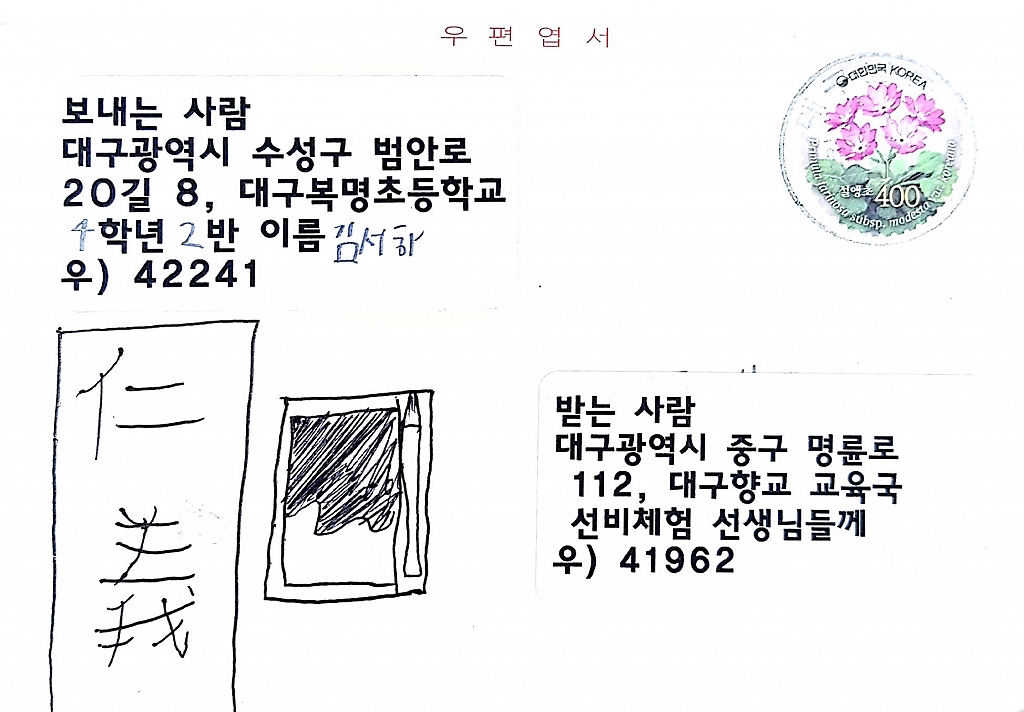 우편엽서
대한민국 KOREA
설앵초 400
Primula farinosa subsp. modesta var. koreana
보내는 사람
대구광역시 수성구 범안로
20길 8, 대구복명초등학교
4학년 2반 이름 김서하
우) 42241
仁
義
받는 사람
대구광역시 중구 명륜로
112, 대구향교 교육국
선비체험 선생님들께
우) 41962